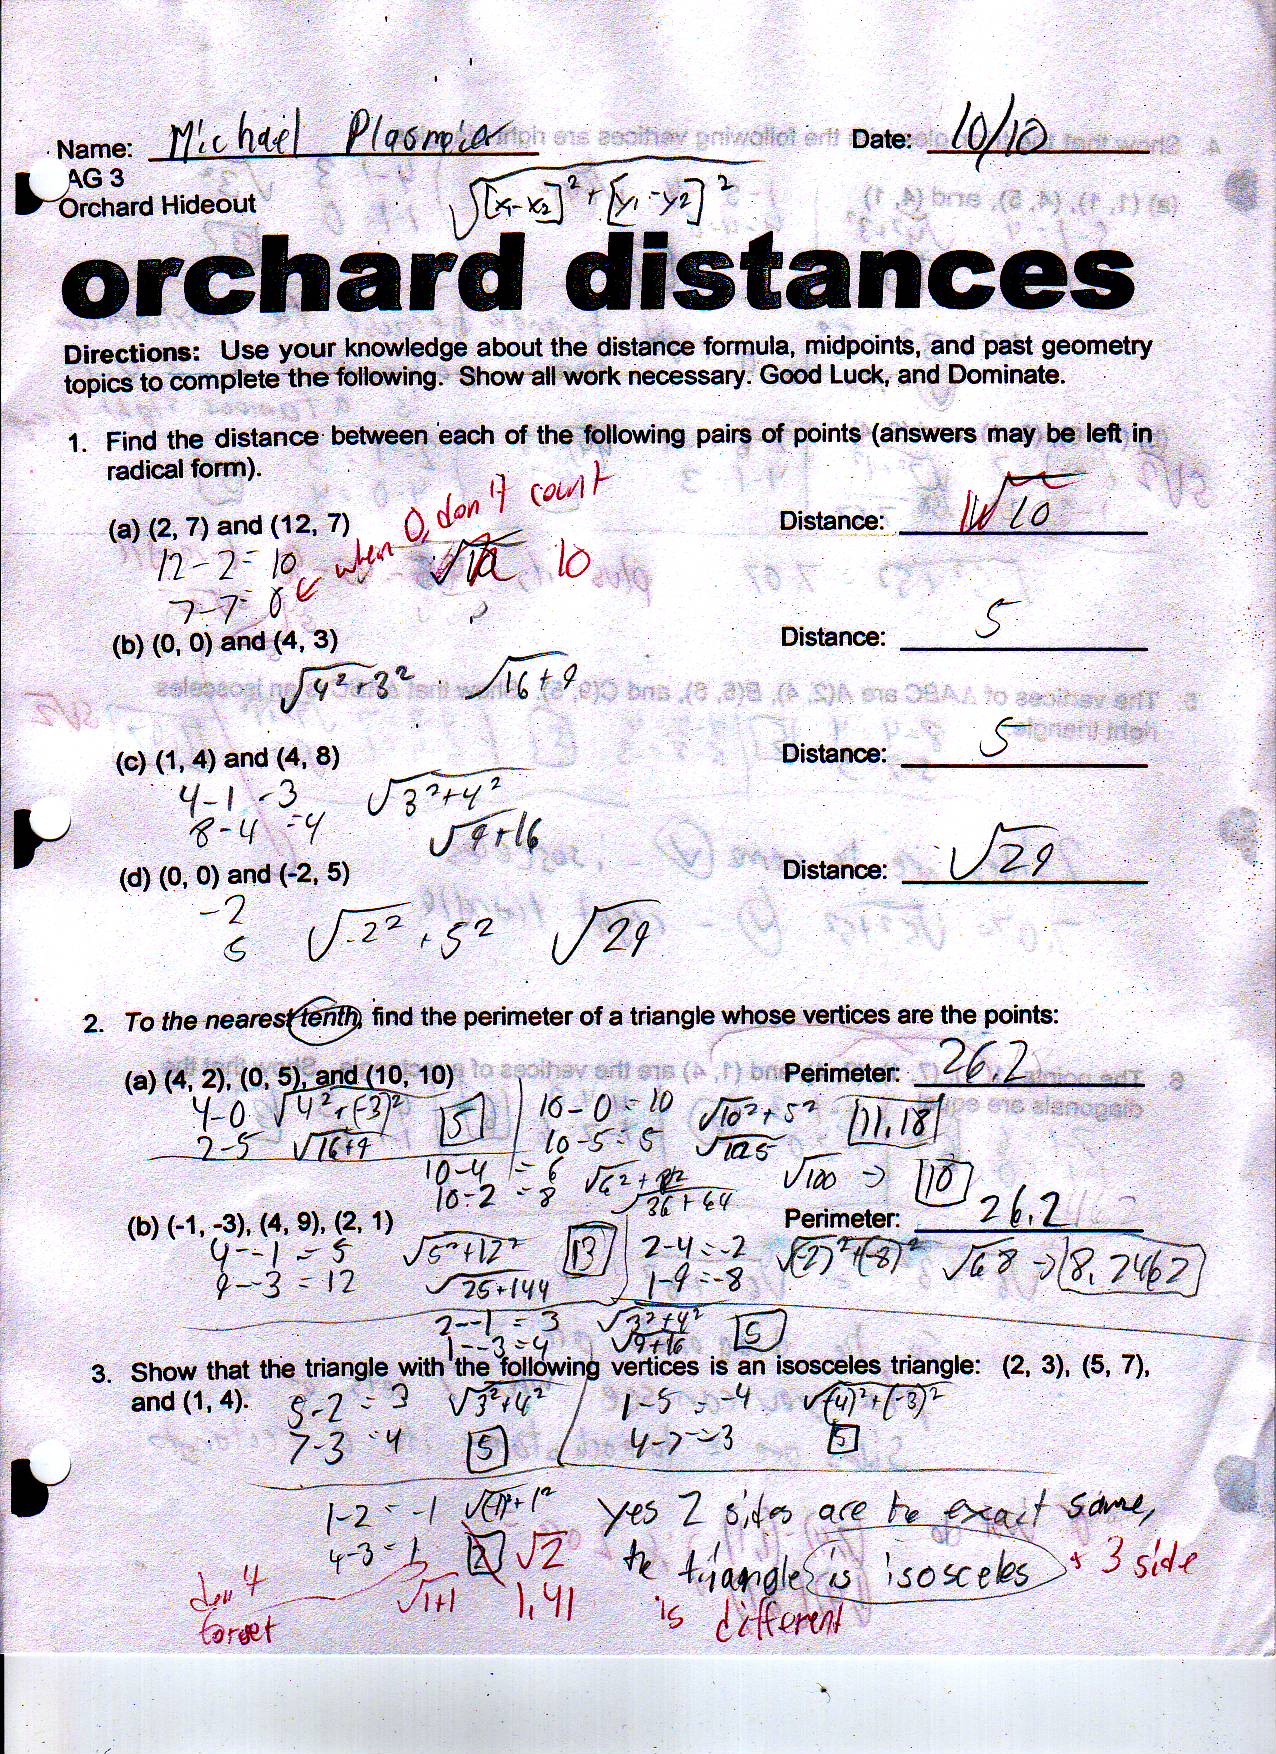 Name: Michael Plasmeier Date: 10/10
AG 3
Orchard Hideout
√[x₁-x₂]² + [y₁-y₂]²
orchard distances
Directions: Use your knowledge about the distance formula, midpoints, and past geometry
topics to complete the following. Show all work necessary. Good Luck, and Dominate.
1. Find the distance between each of the following pairs of points (answers may be left in
radical form).
(a) (2, 7) and (12, 7) Distance: √10
12-2=10 when 0, don't count 10
7-7=0
(b) (0, 0) and (4, 3) Distance: 5
√4²+3² √16+9
(c) (1, 4) and (4, 8) Distance: 5
4-1=3 √3²+4²
8-4=4 √9+16
(d) (0, 0) and (-2, 5) Distance: √29
-2
5 √-2²+5² √29
2. To the nearest tenth, find the perimeter of a triangle whose vertices are the points:
(a) (4, 2), (0, 5), and (10, 10) Perimeter: 26.2
4-0 √4²+(-3)² 5 10-0=10 √10²+5² 11.18
2-5 √16+9 10-5=5 √125
10-4=6 √6²+8² √100 → 10
10-2=8 √36+64
(b) (-1, -3), (4, 9), (2, 1) Perimeter: 26.2
4--1=5 √5²+12² 13 2-4=-2 √(-2)²+(-8)² √68 → 8.2462
9--3=12 √25+144 1-9=-8
2--1=3 √3²+4² 5
1--3=4 √9+16
3. Show that the triangle with the following vertices is an isosceles triangle: (2, 3), (5, 7),
and (1, 4). 5-2=3 √3²+4² 1-5=-4 √(-4)²+(-3)²
7-3=4 5 4-7=-3 5
1-2=-1 √(-1)²+1² yes 2 sides are the exact same,
4-3=1 2 √2 the triangle is isosceles + 3 side
don't forget √1+1 1.41 is different